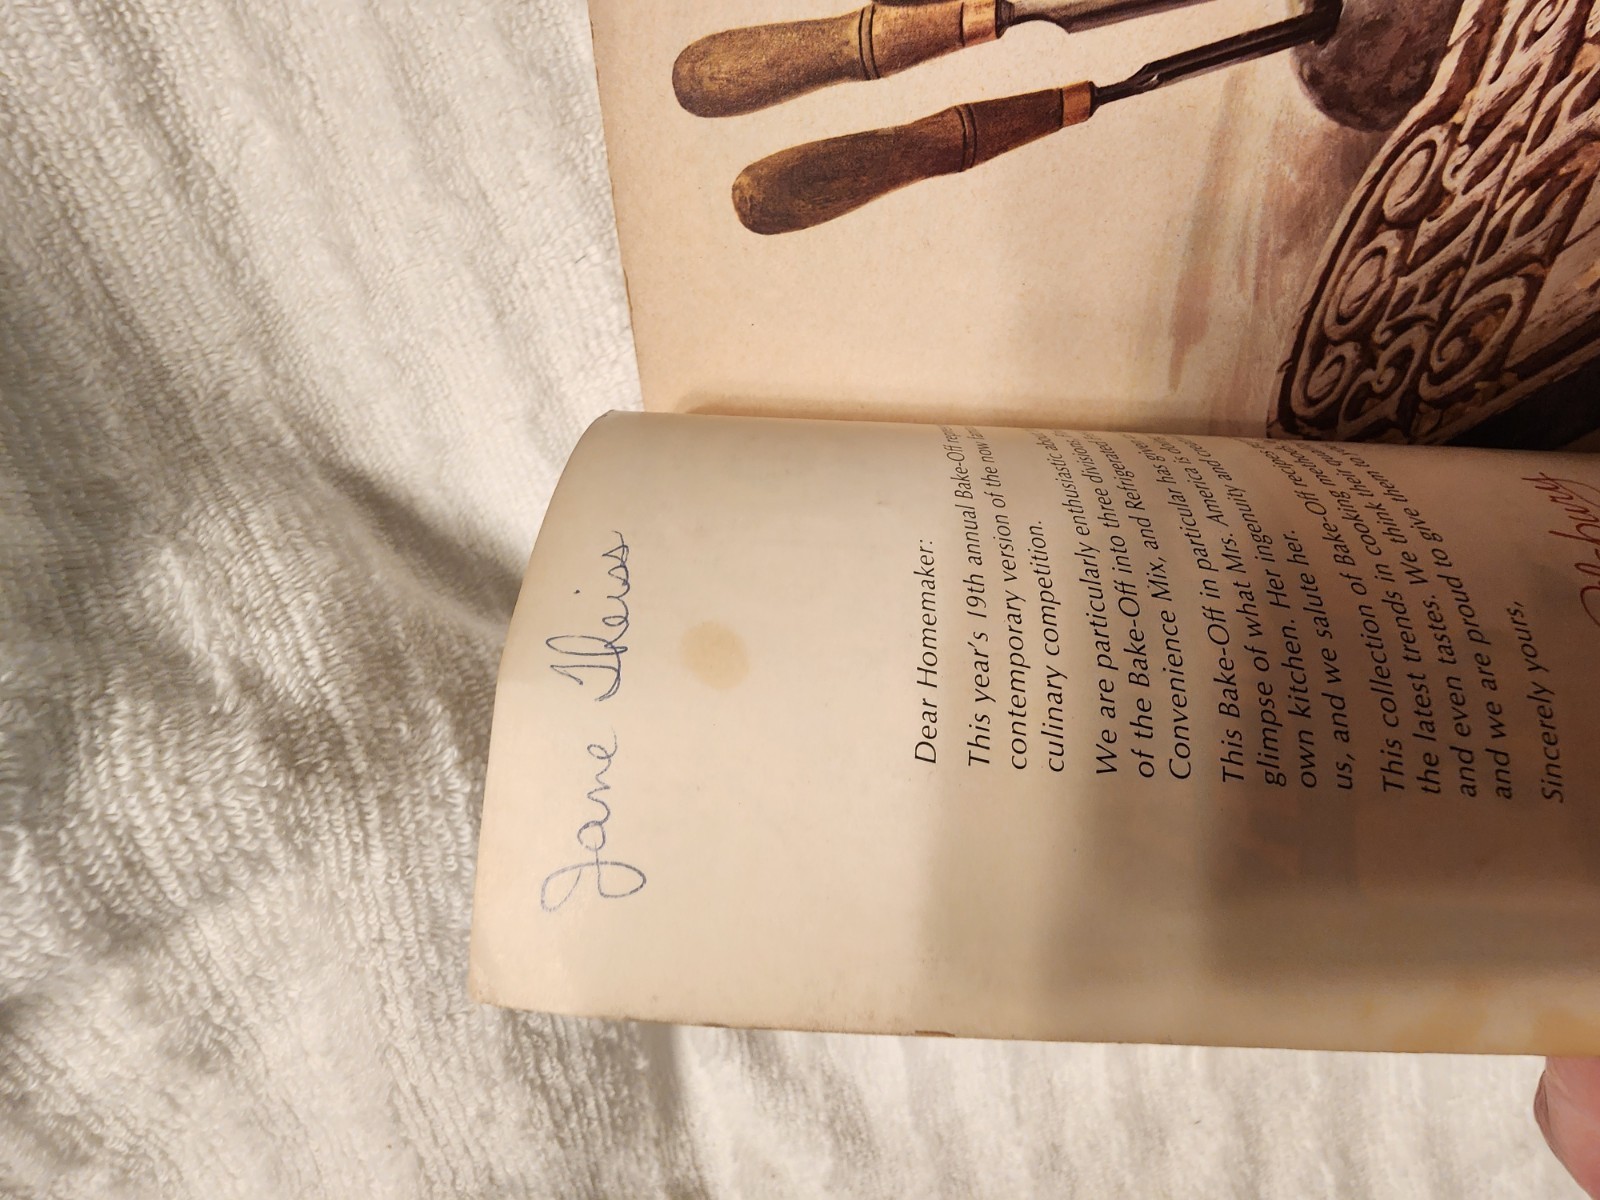 Jane Theiss
Dear Homemaker:
This year's 19th annual Bake-Off
contemporary version of the now
culinary competition.
We are particularly enthusiastic
of the Bake-Off into three divisions
Convenience Mix, and Refrigerated
This Bake-Off in particular has
glimpse of what Mrs. America is
own kitchen. Her ingenuity and
us, and we salute her.
This collection of Bake-Off
the latest trends in cooking
and even tastes. We think they
and we are proud to give them
Sincerely yours,